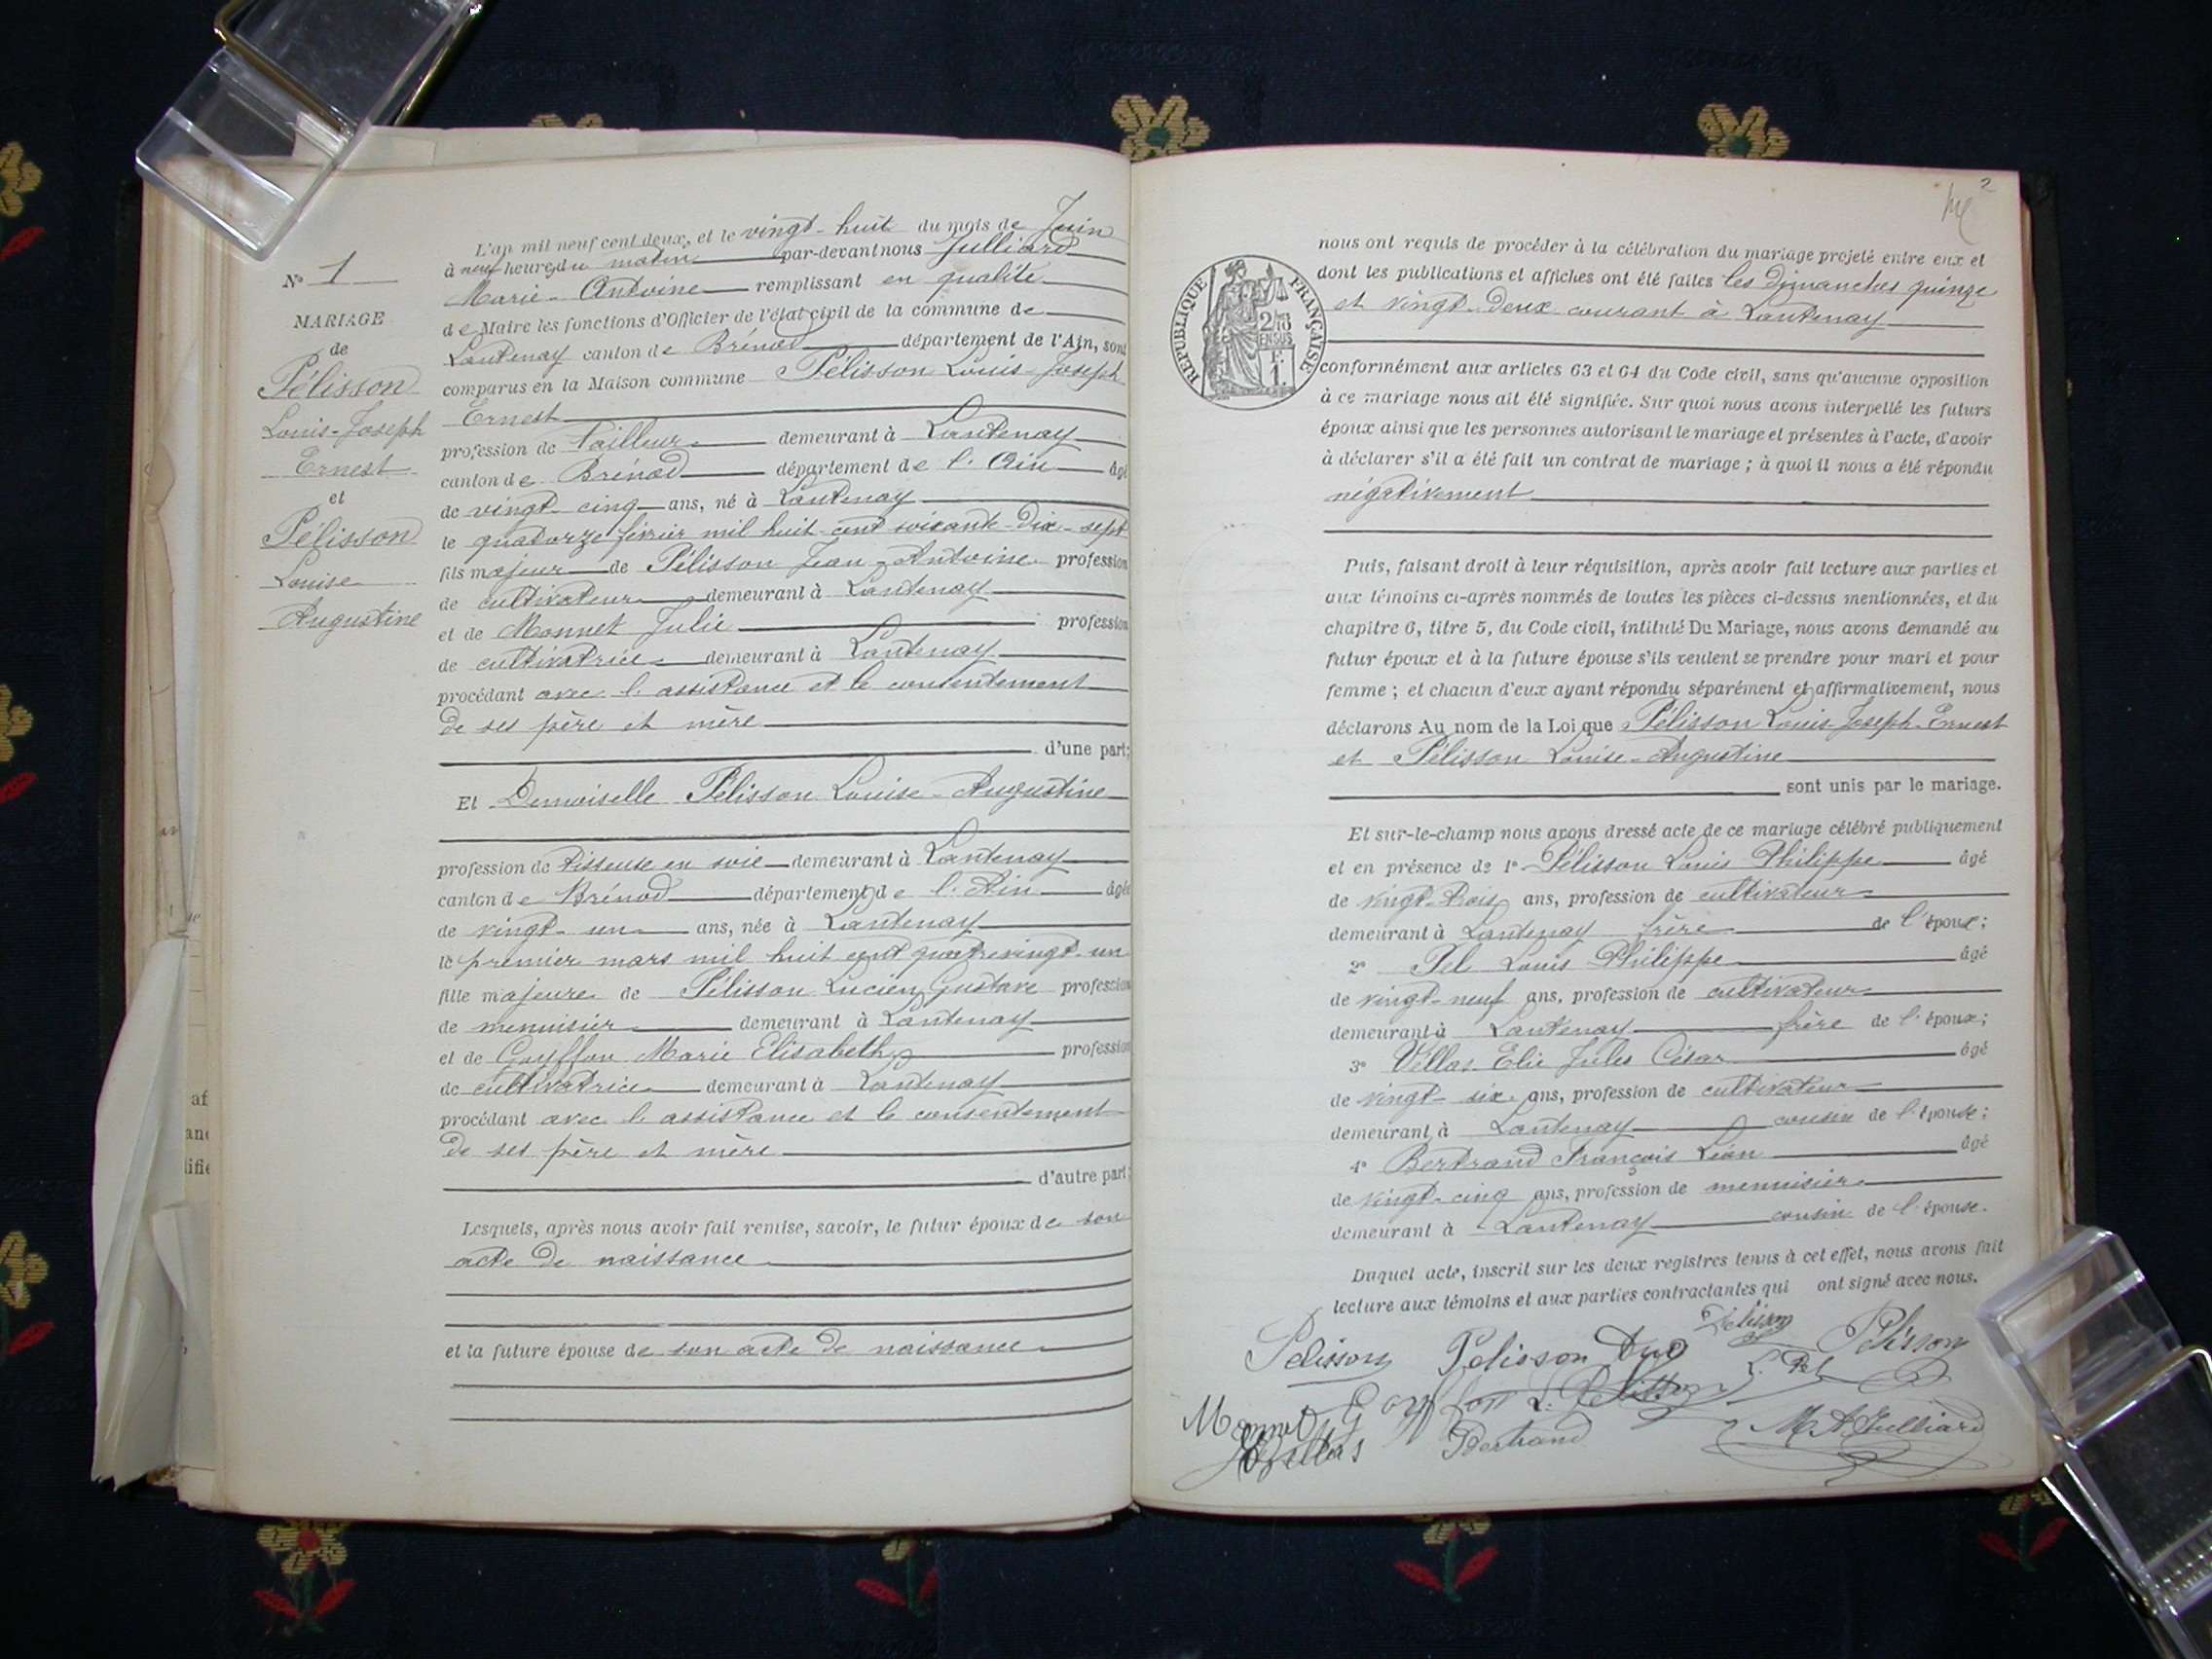 N° 1
MARIAGE
de
Pélisson
Louis-Joseph
Ernest
et
Pélisson
Louise
Augustine
L'an mil neuf cent deux, et le vingt-huit du mois de Juin
à neuf heures du matin par-devant nous Julliard
Marie-Antoine remplissant en qualité
de Maire les fonctions d'Officier de l'état civil de la commune de
Lantenay canton de Brénod département de l'Ain, sont
comparus en la Maison commune Pélisson Louis-Joseph
Ernest
profession de Tailleur demeurant à Lantenay
canton de Brénod département de l'Ain âgé
de vingt-cinq ans, né à Lantenay
le quatorze février mil huit cent soixante-dix-sept
fils majeur de Pélisson Jean-Antoine profession
de cultivateur demeurant à Lantenay
et de Monnet Julie profession
de cultivatrice demeurant à Lantenay
procédant avec l'assistance et le consentement
de ses père et mère
d'une part;
Et Demoiselle Pélisson Louise-Augustine
profession de tisseuse en soie demeurant à Lantenay
canton de Brénod département de l'Ain âgée
de vingt-un ans, née à Lantenay
le premier mars mil huit cent quatrevingt-un
fille majeure de Pélisson Lucien Gustave profession
de menuisier demeurant à Lantenay
et de Goyffon Marie Elisabeth profession
de cultivatrice demeurant à Lantenay
procédant avec l'assistance et le consentement
de ses père et mère
d'autre part;
Lesquels, après nous avoir fait remise, savoir, le futur époux de son
acte de naissance
et la future épouse de son acte de naissance
2
RÉPUBLIQUE FRANÇAISE
2/10
EN SUS
F.
1.
nous ont requis de procéder à la célébration du mariage projeté entre eux et
dont les publications et affiches ont été faites les dimanches quinze
et vingt-deux courant à Lantenay
conformément aux articles 63 et 64 du Code civil, sans qu'aucune opposition
à ce mariage nous ait été signifiée. Sur quoi nous avons interpellé les futurs
époux ainsi que les personnes autorisant le mariage et présentes à l'acte, d'avoir
à déclarer s'il a été fait un contrat de mariage; à quoi il nous a été répondu
négativement
Puis, faisant droit à leur réquisition, après avoir fait lecture aux parties et
aux témoins ci-après nommés de toutes les pièces ci-dessus mentionnées, et du
chapitre 6, titre 5, du Code civil, intitulé Du Mariage, nous avons demandé au
futur époux et à la future épouse s'ils veulent se prendre pour mari et pour
femme; et chacun d'eux ayant répondu séparément et affirmativement, nous
déclarons Au nom de la Loi que Pélisson Louis-Joseph-Ernest
et Pélisson Louise-Augustine
sont unis par le mariage.
Et sur-le-champ nous avons dressé acte de ce mariage célébré publiquement
et en présence de 1° Pélisson Louis Philippe âgé
de vingt-trois ans, profession de cultivateur
demeurant à Lantenay frère de l'époux;
2° Pel Louis Philippe âgé
de vingt-neuf ans, profession de cultivateur
demeurant à Lantenay frère de l'époux;
3° Villas Elie Jules César âgé
de vingt-six ans, profession de cultivateur
demeurant à Lantenay cousin de l'épouse;
4° Bertrand François Léon âgé
de vingt-cinq ans, profession de menuisier
demeurant à Lantenay cousin de l'épouse.
Duquel acte, inscrit sur les deux registres tenus à cet effet, nous avons fait
lecture aux témoins et aux parties contractantes qui ont signé avec nous.
Pélisson Pelisson Pélisson Pelisson
Monnet Goyffon L. Pelisson L. Pel
Villas Bertrand M A Julliard